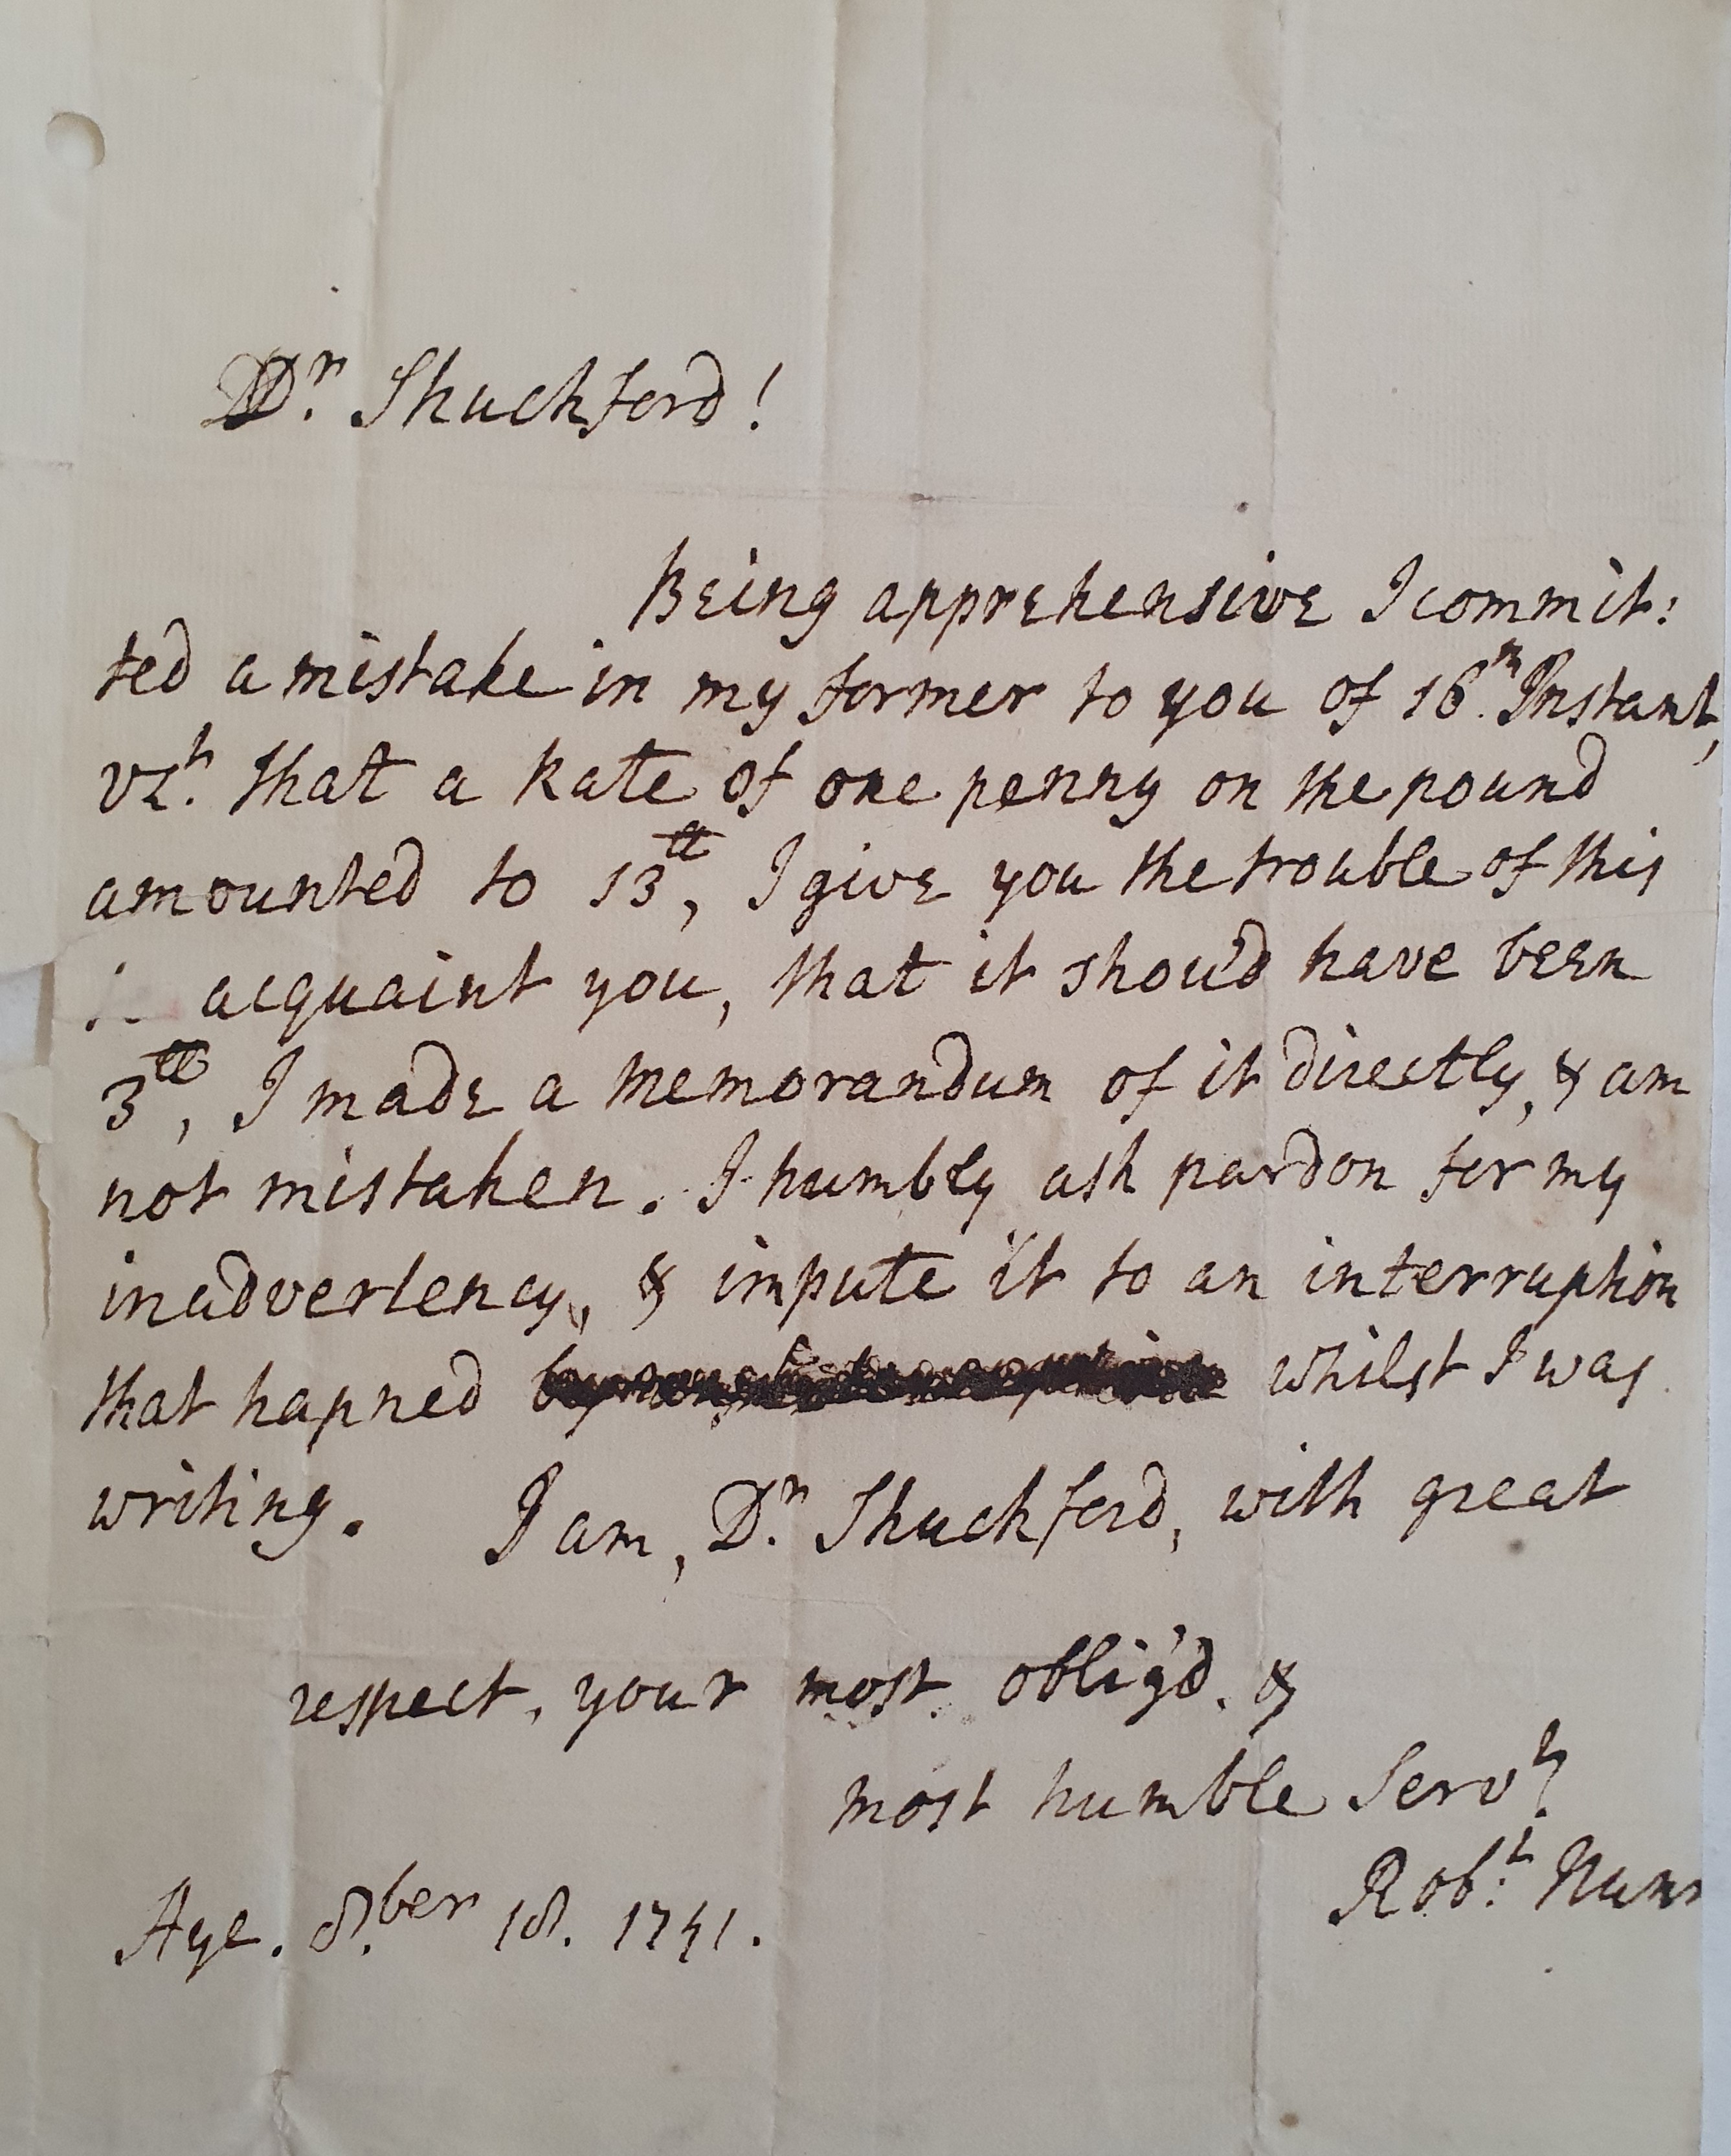 Dr. Shuckford!
Being apprehensive I commit:
ted a mistake in my former to you of 16.th Instant,
vzt. that a Rate of one penny on the pound
amounted to 13ll, I give you the trouble of this
acquaint you, that it shou'd have been
3ll, I made a Memorandum of it directly, & am
not mistaken. I humbly ask pardon for my
inadvertency, & impute it to an interruption
that hapned whilst I was
writing. I am, Dr. Shuckford, with great
respect, your most oblig'd, &
most humble Servt.
Robt: Nunn
Aye. 8.ber 18. 1741.